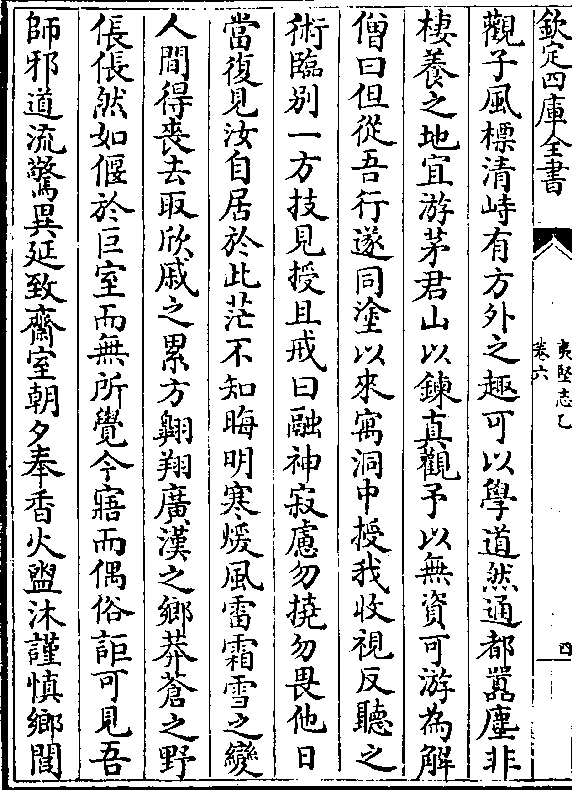 欽定四庫全書
夷堅志乙
卷六
四
觀子風標清峙有方外之趣可以學道然通都嚻塵非
棲養之地宜游茅君山以鍊真觀予以無資可游為解
僧曰但從吾行遂同塗以來寓洞中授我收視反聽之
術臨别一方技見授且戒曰融神寂慮勿撓勿畏他日
當復見汝自居於此茫不知晦明寒煖風雷霜雪之變
人間得喪去取欣戚之累方翺翔廣漢之鄉莽蒼之野
倀倀然如偃於巨室而無所覺今寤而偶俗詎可見吾
師邪道流驚異延致齋室朝夕奉香火盥沐謹慎鄉閭